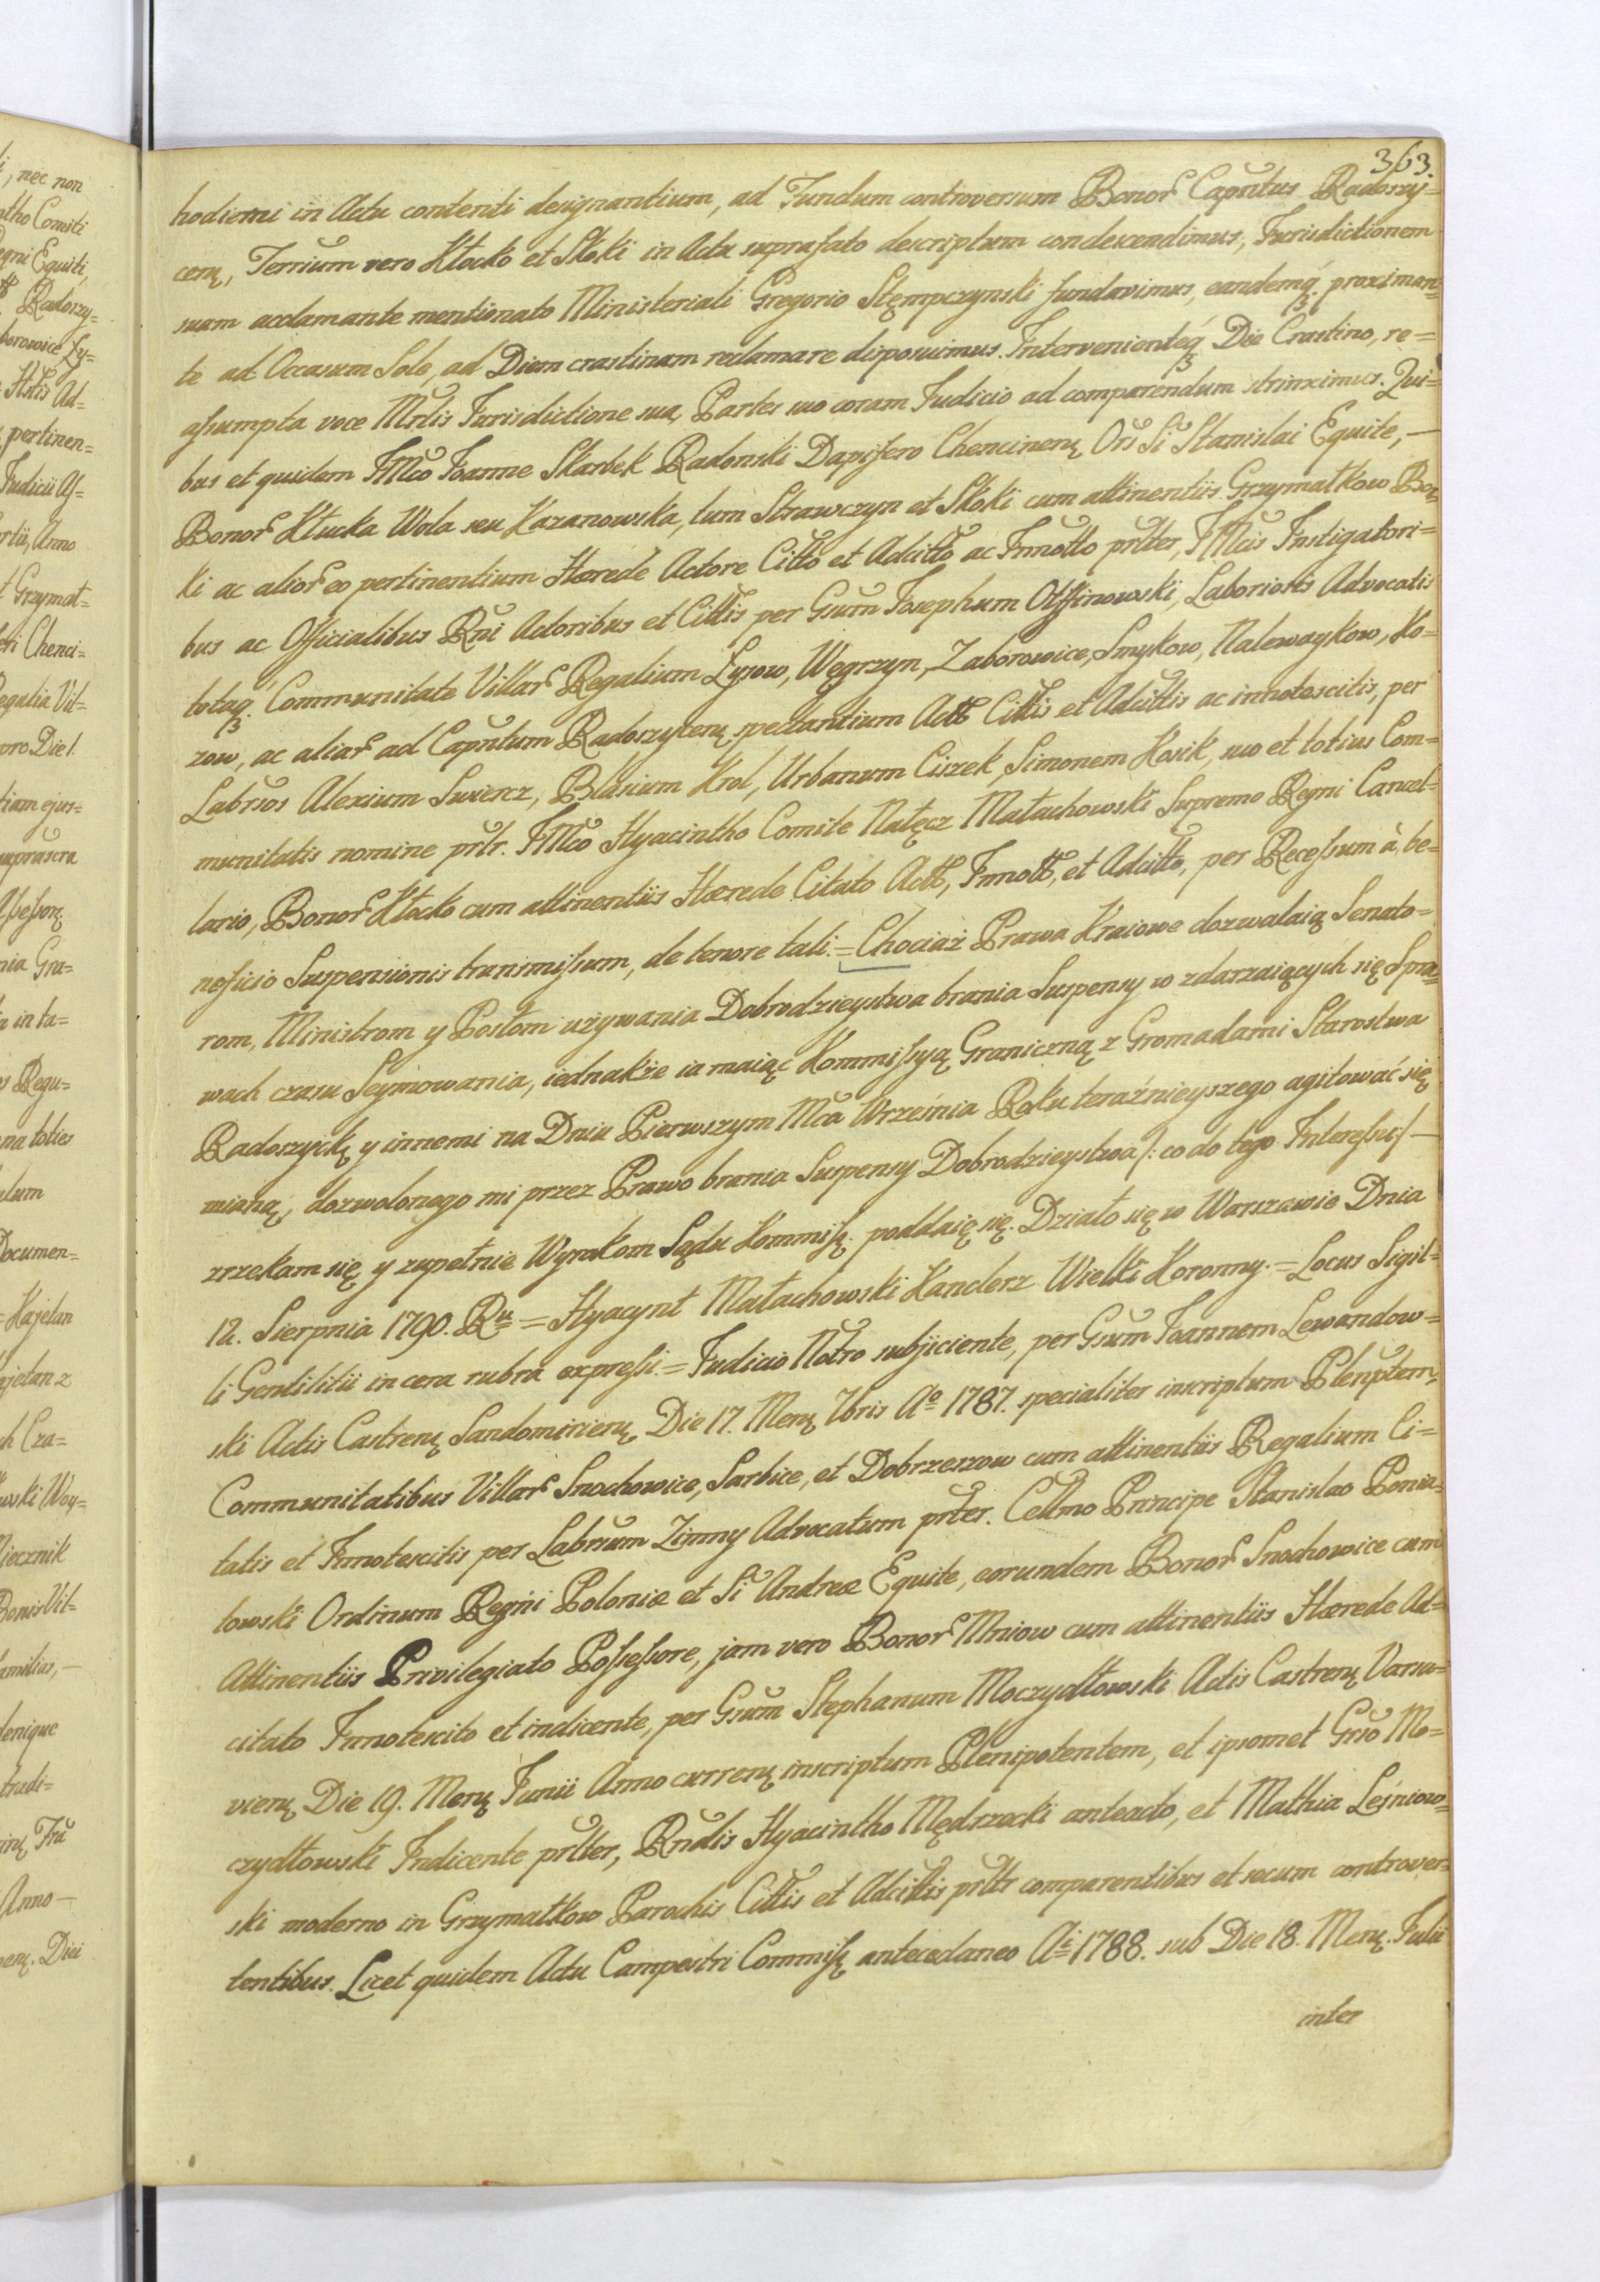 363.
hodierni in Actu contenti designantium, ad Fundum controversum Bonor̃ Capñtus Radoszy=
ceñ, Terrium vero Kłocko et Skoki in Actu suprafato descriptum condescendimus, Jurisdictionem
suam acclamante mentionato Ministeriali Gregorio Stęmpczynski fundavimus, eandemq́ proximan=
te ad Occasum Sole, ad Diem crastinam reclamare disposuimus. Intervenienteq́ Die Crastino, re=
assumpta voce Mrlis Jurisdictione sua, Partes suo coram Judicio ad comparendum strinximus. Qui=
bus et quidem JMco Joanne Skarbek Radonski Dapifero Chencineñ Oris Sti Stanislai Equite, —
Bonor̃ Kłucka Wola seu Kazanowska, tum Strawczyn et Skoki cum attinentiis Grzymałkow Bor
ki ac alior̃ eo pertinentium Hærede Actore Citto et Adcitto ac Innotto prlter, JMcis Instigatori=
bus ac Officialibus Rni Actoribus et Cittis per Grum Josephum Olszinowski, Laboriosis Advocatis
totaq́ Communitate Villar̃ Regalium Łysow, Węgrzyn, Zaborowice, Smykow, Nalewaykow, Ko=
zow, ac aliar̃ ad Capñtum Radoszyceñ spectantium Actt Cittis et Adcittis ac innotescitis, per
Labrsos Alexium Suwercz, Blasium Krol, Urbanum Ciszek, Simonem Kosik, suo et totius Com=
munitatis nomine prltr. JMco Hyacintho Comite Nałęcz Małachowski Supremo Regni Cancel=
lario, Bonor̃ Kłocko cum attinentiis Hærede Citato Actt, Innott, et Adcitto, per Recessum à be=
neficio Suspensionis transmissum, de tenore tali: = Chociaż Prawa Kraiowe dozwalaią Senato=
rom, Ministrom y Posłom używania Dobrodzieystwa brania Suspensy w zdarzaiących się Spra=
wach czasu Seymowania, iednakże ia maiąc Kommissyą Graniczną z Gromadami Starostwa
Radoszyckę y innemi na Dniu Pierwszym Mca Września Roku teraźnieyszego agitować się
mianą, dozwolonego mi przez Prawo brania Suspensy Dobrodzieystwa /: co do tego Interessu :/ —
zrzekam się y zupełnie Wyrokom Sądu Kommisę. poddaię się. Działo się w Warszawie Dnia
12. Sierpnia 1790. Ru = Hyacynt Małachowski Kanclerz Wielki Koronny. = Locus Sigil=
li Gentilitii in cera rubra expressi. = Judicio Nostro subjiciente, per Grum Joannem Lewandow=
ski Actis Castreñ Sandomirieñ Die 17. Meñ 7bris Ao 1787. specialiter inscriptum Plenptem,
Communitatibus Villar̃ Snochowice, Sarbice, et Dobrzeszow cum attinentiis Regalium Ci=
tatis et Innotescitis per Labrsum Zimny Advocatum prlter. Celsmo Principe Stanislao Ponia=
towski Ordinum Regni Poloniæ et Sti Andreæ Equite, eorundem Bonor̃ Snochowice cum
Attinentiis Privilegiato Possessore, jam vero Bonor̃ Mniow cum attinentiis Hærede Ad=
citato Innotescito et indicente, per Grum Stephanum Moczydłowski Actis Castreñ Varsa=
vieñ Die 19. Meñ Junii Anno curreñ inscriptum Plenipotentem, et ipsomet Grso Mo=
czydłowski Indicente prlter, Rndis Hyacintho Mędrzecki anteacto, et Mathia Leśniow=
ski moderno in Grzymałkow Parochis Cittis et Adcittis prltr comparentibus et secum controver=
tentibus. Licet quidem Actu Campestri Commisę antecedaneo Ai 1788. sub Die 18. Meñ. Julii
inter